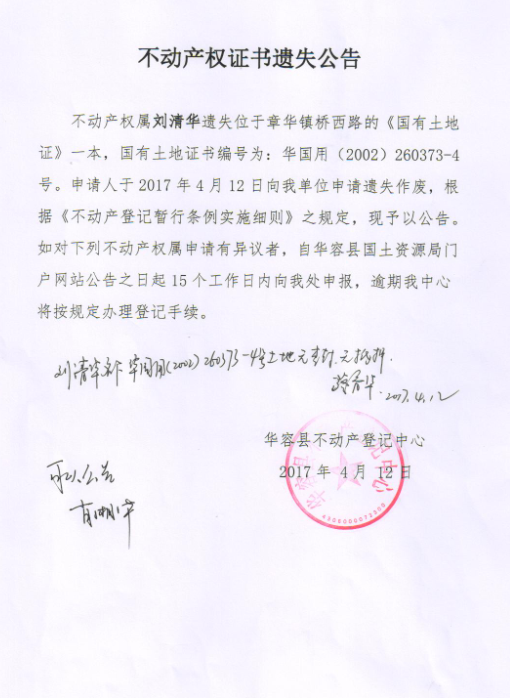 不动产权证书遗失公告
不动产权属刘清华遗失位于章华镇桥西路的《国有土地
证》一本，国有土地证书编号为：华国用（2002）260373-4
号。申请人于 2017 年 4 月 12 日向我单位申请遗失作废，根
据《不动产登记暂行条例实施细则》之规定，现予以公告。
如对下列不动产权属申请有异议者，自华容县国土资源局门
户网站公告之日起 15 个工作日内向我处申报，逾期我中心
将按规定办理登记手续。
刘清华 华国用(2002)260373-4号土地无查封.无抵押.
2017.4.12
华容县不动产登记中心
2017 年 4 月 12 日
公告